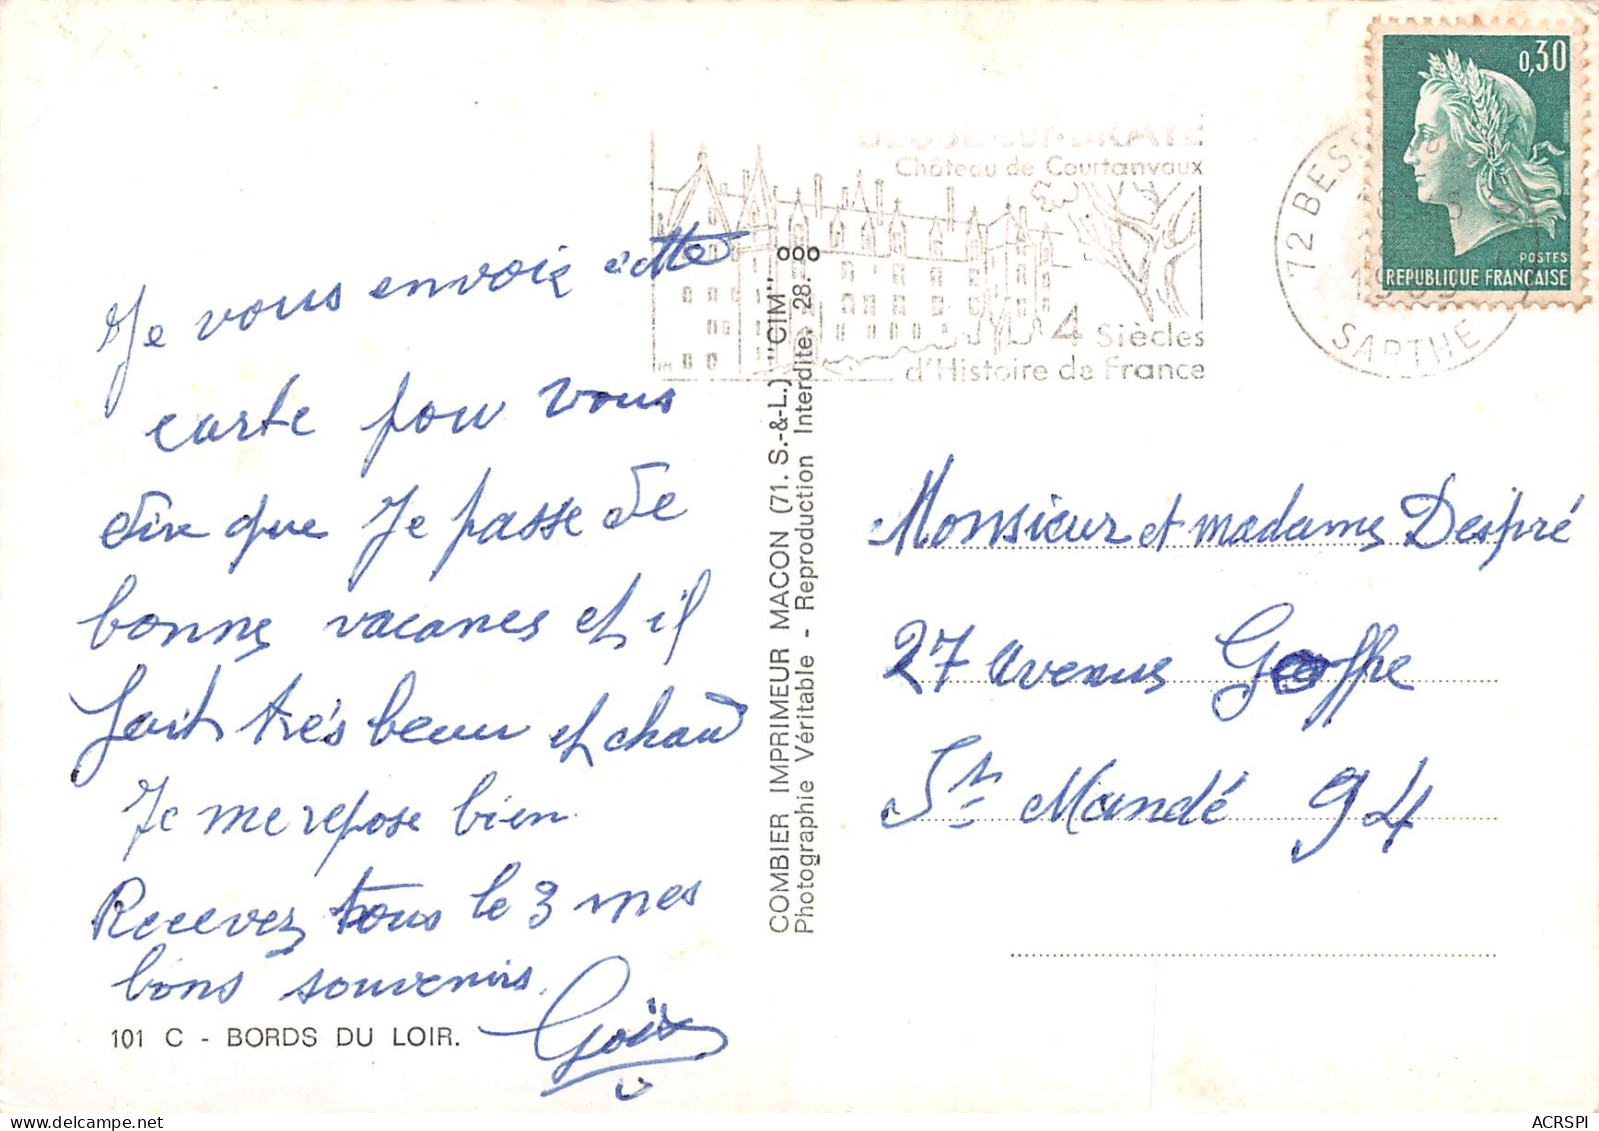 Je vous envoie cette
carte pour vous
dire que Je passe de
bonne vacances et il
fait très beau et chaud
Je me repose bien
Recevez tous le 3 mes
bons souvenirs.
101 C - BORDS DU LOIR.
COMBIER IMPRIMEUR MACON (71. S.-&-L.) "CIM"
Photographie Véritable - Reproduction Interdite. 28.
Château de Courtanvaux
4 Siècles
d'Histoire de France
72 BESS
SARTHE
0,30
POSTES
REPUBLIQUE FRANÇAISE
Monsieur et madame Despré
27 avenue
St Mandé 94
ACRSPI